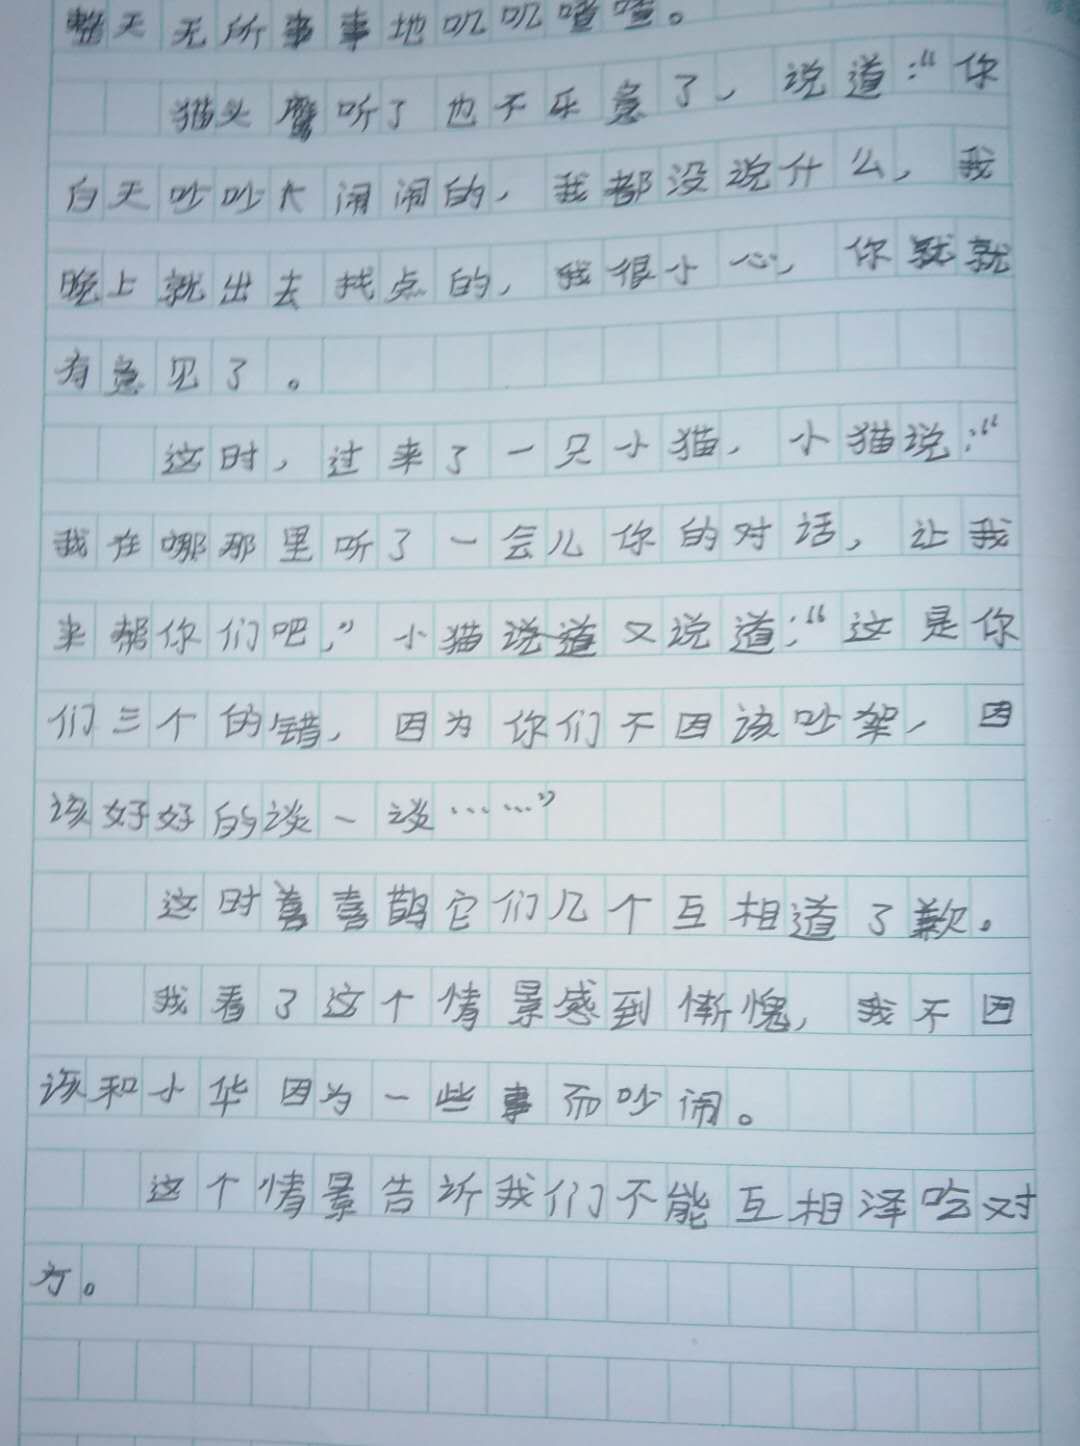 整天无所事事地叽叽喳喳。
猫头鹰听了也不乐意了，说道：“你
白天吵吵大闹闹的，我都没说什么，我
晚上就出去找点的，我很小心，你就就
有意见了。
这时，过来了一只小猫，小猫说：“
我在哪那里听了一会儿你的对话，让我
来帮你们吧，”小猫说道又说道：“这是你
们三个的错，因为你们不因该吵架，因
该好好的谈一谈……”
这时喜喜鹊它们几个互相道了歉。
我看了这个情景感到惭愧，我不因
该和小华因为一些事而吵闹。
这个情景告诉我们不能互相泽吃对
方。